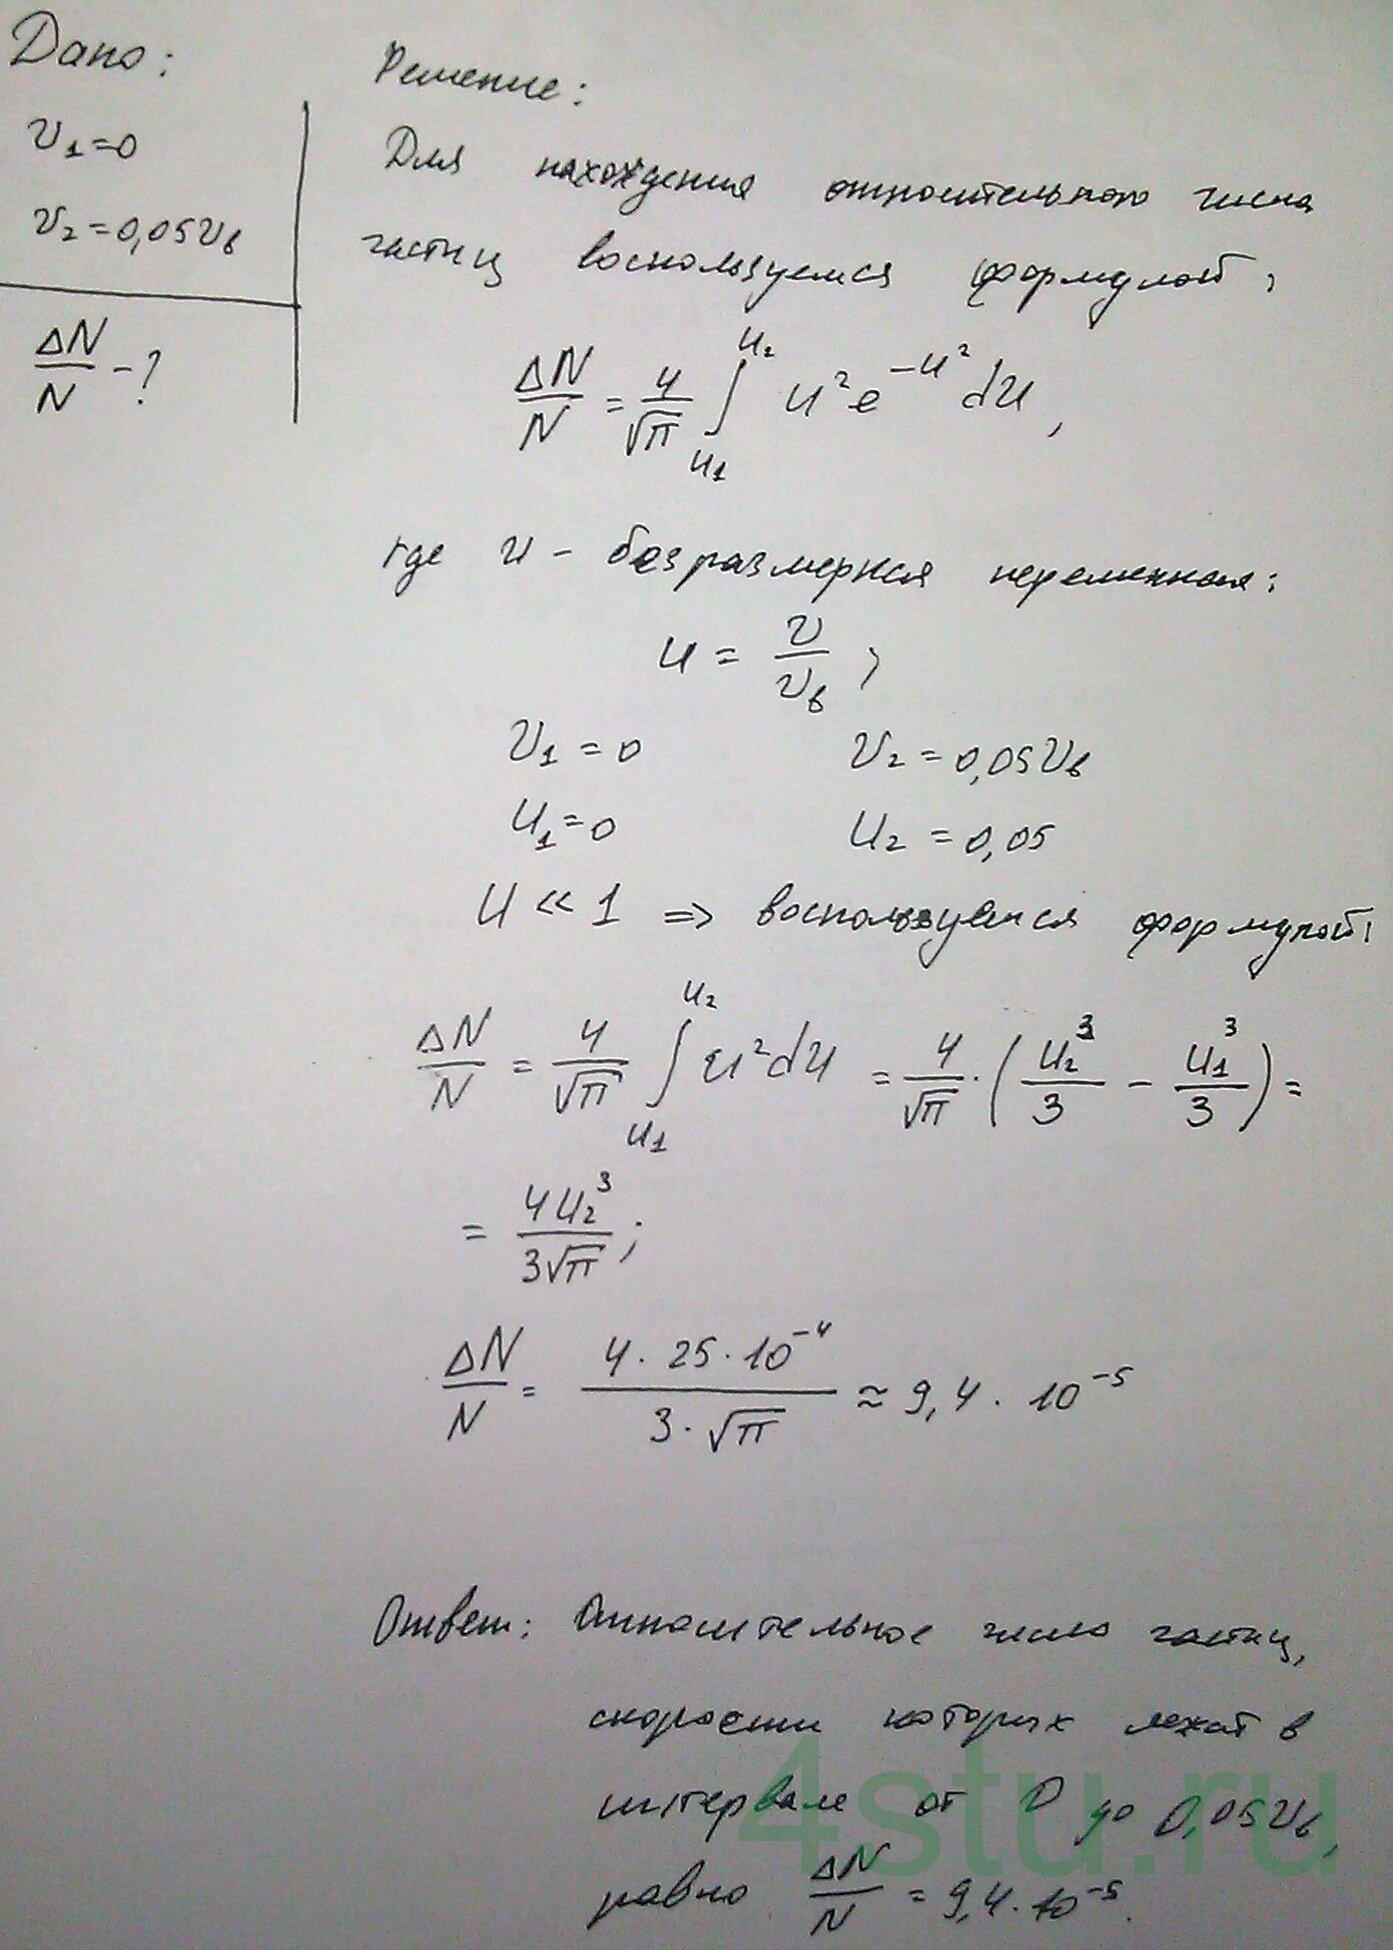 Дано:
υ₁=0
υ₂=0,05υв
ΔN/N -?
Решение:
Для нахождения относительного числа
частиц воспользуемся формулой:
ΔN/N = 4/√π ∫_{u₁}^{u₂} u²e^{-u²}du,
где u - безразмерная переменная:
u = υ/υв;
υ₁=0 υ₂=0,05υв
u₁=0 u₂=0,05
u << 1 => воспользуемся формулой:
ΔN/N = 4/√π ∫_{u₁}^{u₂} u²du = 4/√π · (u₂³/3 - u₁³/3) =
= 4u₂³/3√π;
ΔN/N = 4·25·10⁻⁴/3·√π ≈ 9,4·10⁻⁵
Ответ: Относительное число частиц,
скорости которых лежат в
интервале от 0 до 0,05υв,
равно ΔN/N = 9,4·10⁻⁵.
4stu.ru